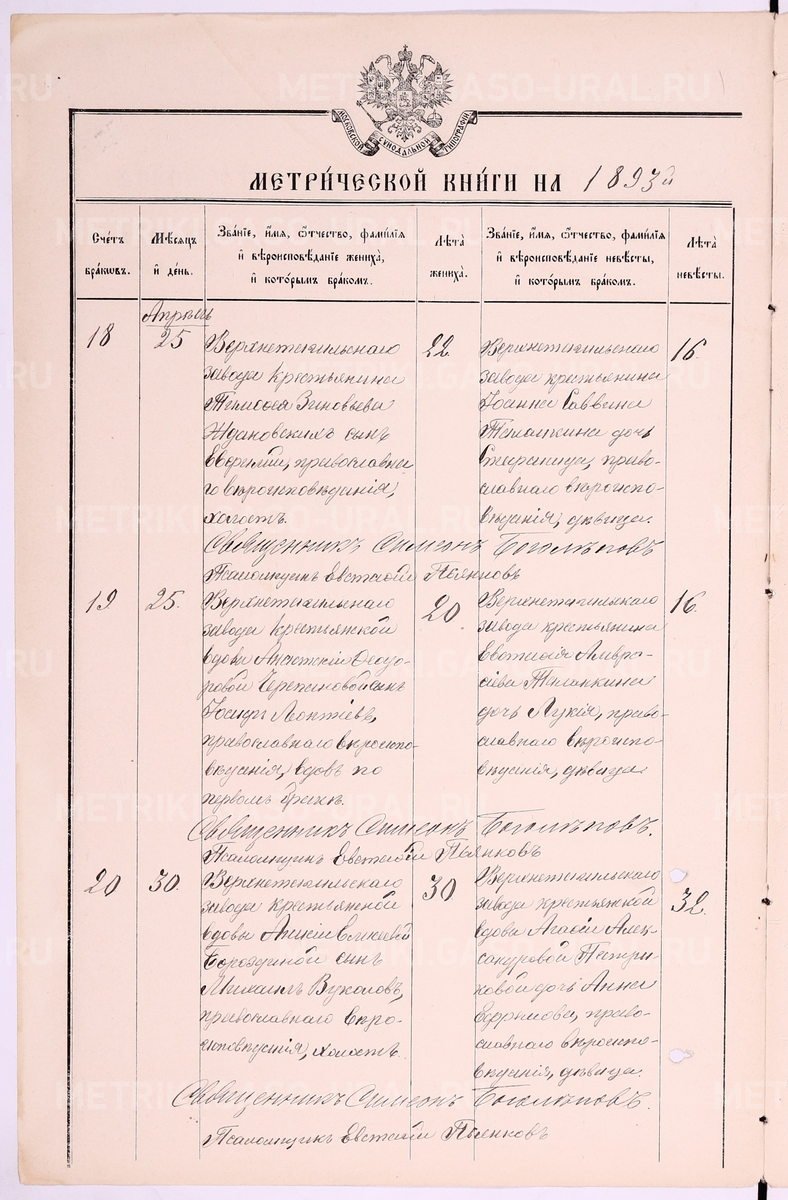 МОСКОВСКОЙ СУНОДАЛЬНОЙ ТИПОГРАФІИ
МЕТРИ́ЧЕСКОЙ КНИ́ГИ НА 1893й
Сче́тъ бра́ковъ.
Мѣ́сяцъ и҆ де́нь.
Зва́нїе, и҆́мя, ѻ҆́тчество, фами́лїя
и҆ вѣроисповѣ́данїе жениха̀,
и҆ кото́рымъ бра́комъ.
Лѣ́та жениха̀.
Зва́нїе, и҆́мя, ѻ҆́тчество, фами́лїя
и҆ вѣроисповѣ́данїе невѣ́сты,
и҆ кото́рымъ бра́комъ.
Лѣ́та невѣ́сты.
Апрель
18
25
Верхнетагильскаго
завода крестьянина
Тимофея Зиновьева
Ждановскихъ сынъ
Евфимій, православна
го вѣроисповѣданія,
холостъ.
22
Верхнетагильскаго
завода крестьянина
Іоанна Саввина
дочь
Стефанида, право-
славнаго вѣроиспо-
вѣданія, дѣвица.
16
Священникъ Симеонъ Боголѣповъ
Псаломщикъ Евстафій Пьянковъ
19
25.
Верхнетагильскаго
завода крестьянской
вдовы Анастасіи Ѳеодо-
ровой Черепановой сынъ
Іосифъ Леонтіевъ,
православнаго вѣроиспо-
вѣданія, вдовъ по
первомъ бракѣ.
20
Верхнетагильскаго
завода крестьянина
Евстафія Амвро-
сіева
дочь Лукія, право-
славнаго вѣроиспо-
вѣданія, дѣвица
16.
Священникъ Симеонъ Боголѣповъ.
Псаломщикъ Евстафій Пьянковъ
20
30.
Верхнетагильскаго
завода крестьянской
вдовы
Бороздиной сынъ
Михаилъ Вуколовъ,
православнаго вѣро-
исповѣданія, холостъ.
30
Верхнетагильскаго
завода крестьянской
вдовы Агафіи Алек-
сандровой Петри-
ковой дочь Анна
Ефремова, право-
славнаго вѣроиспо-
вѣданія, дѣвица.
32.
Священникъ Симеонъ Боголѣповъ.
Псаломщикъ Евстафій Пьянковъ